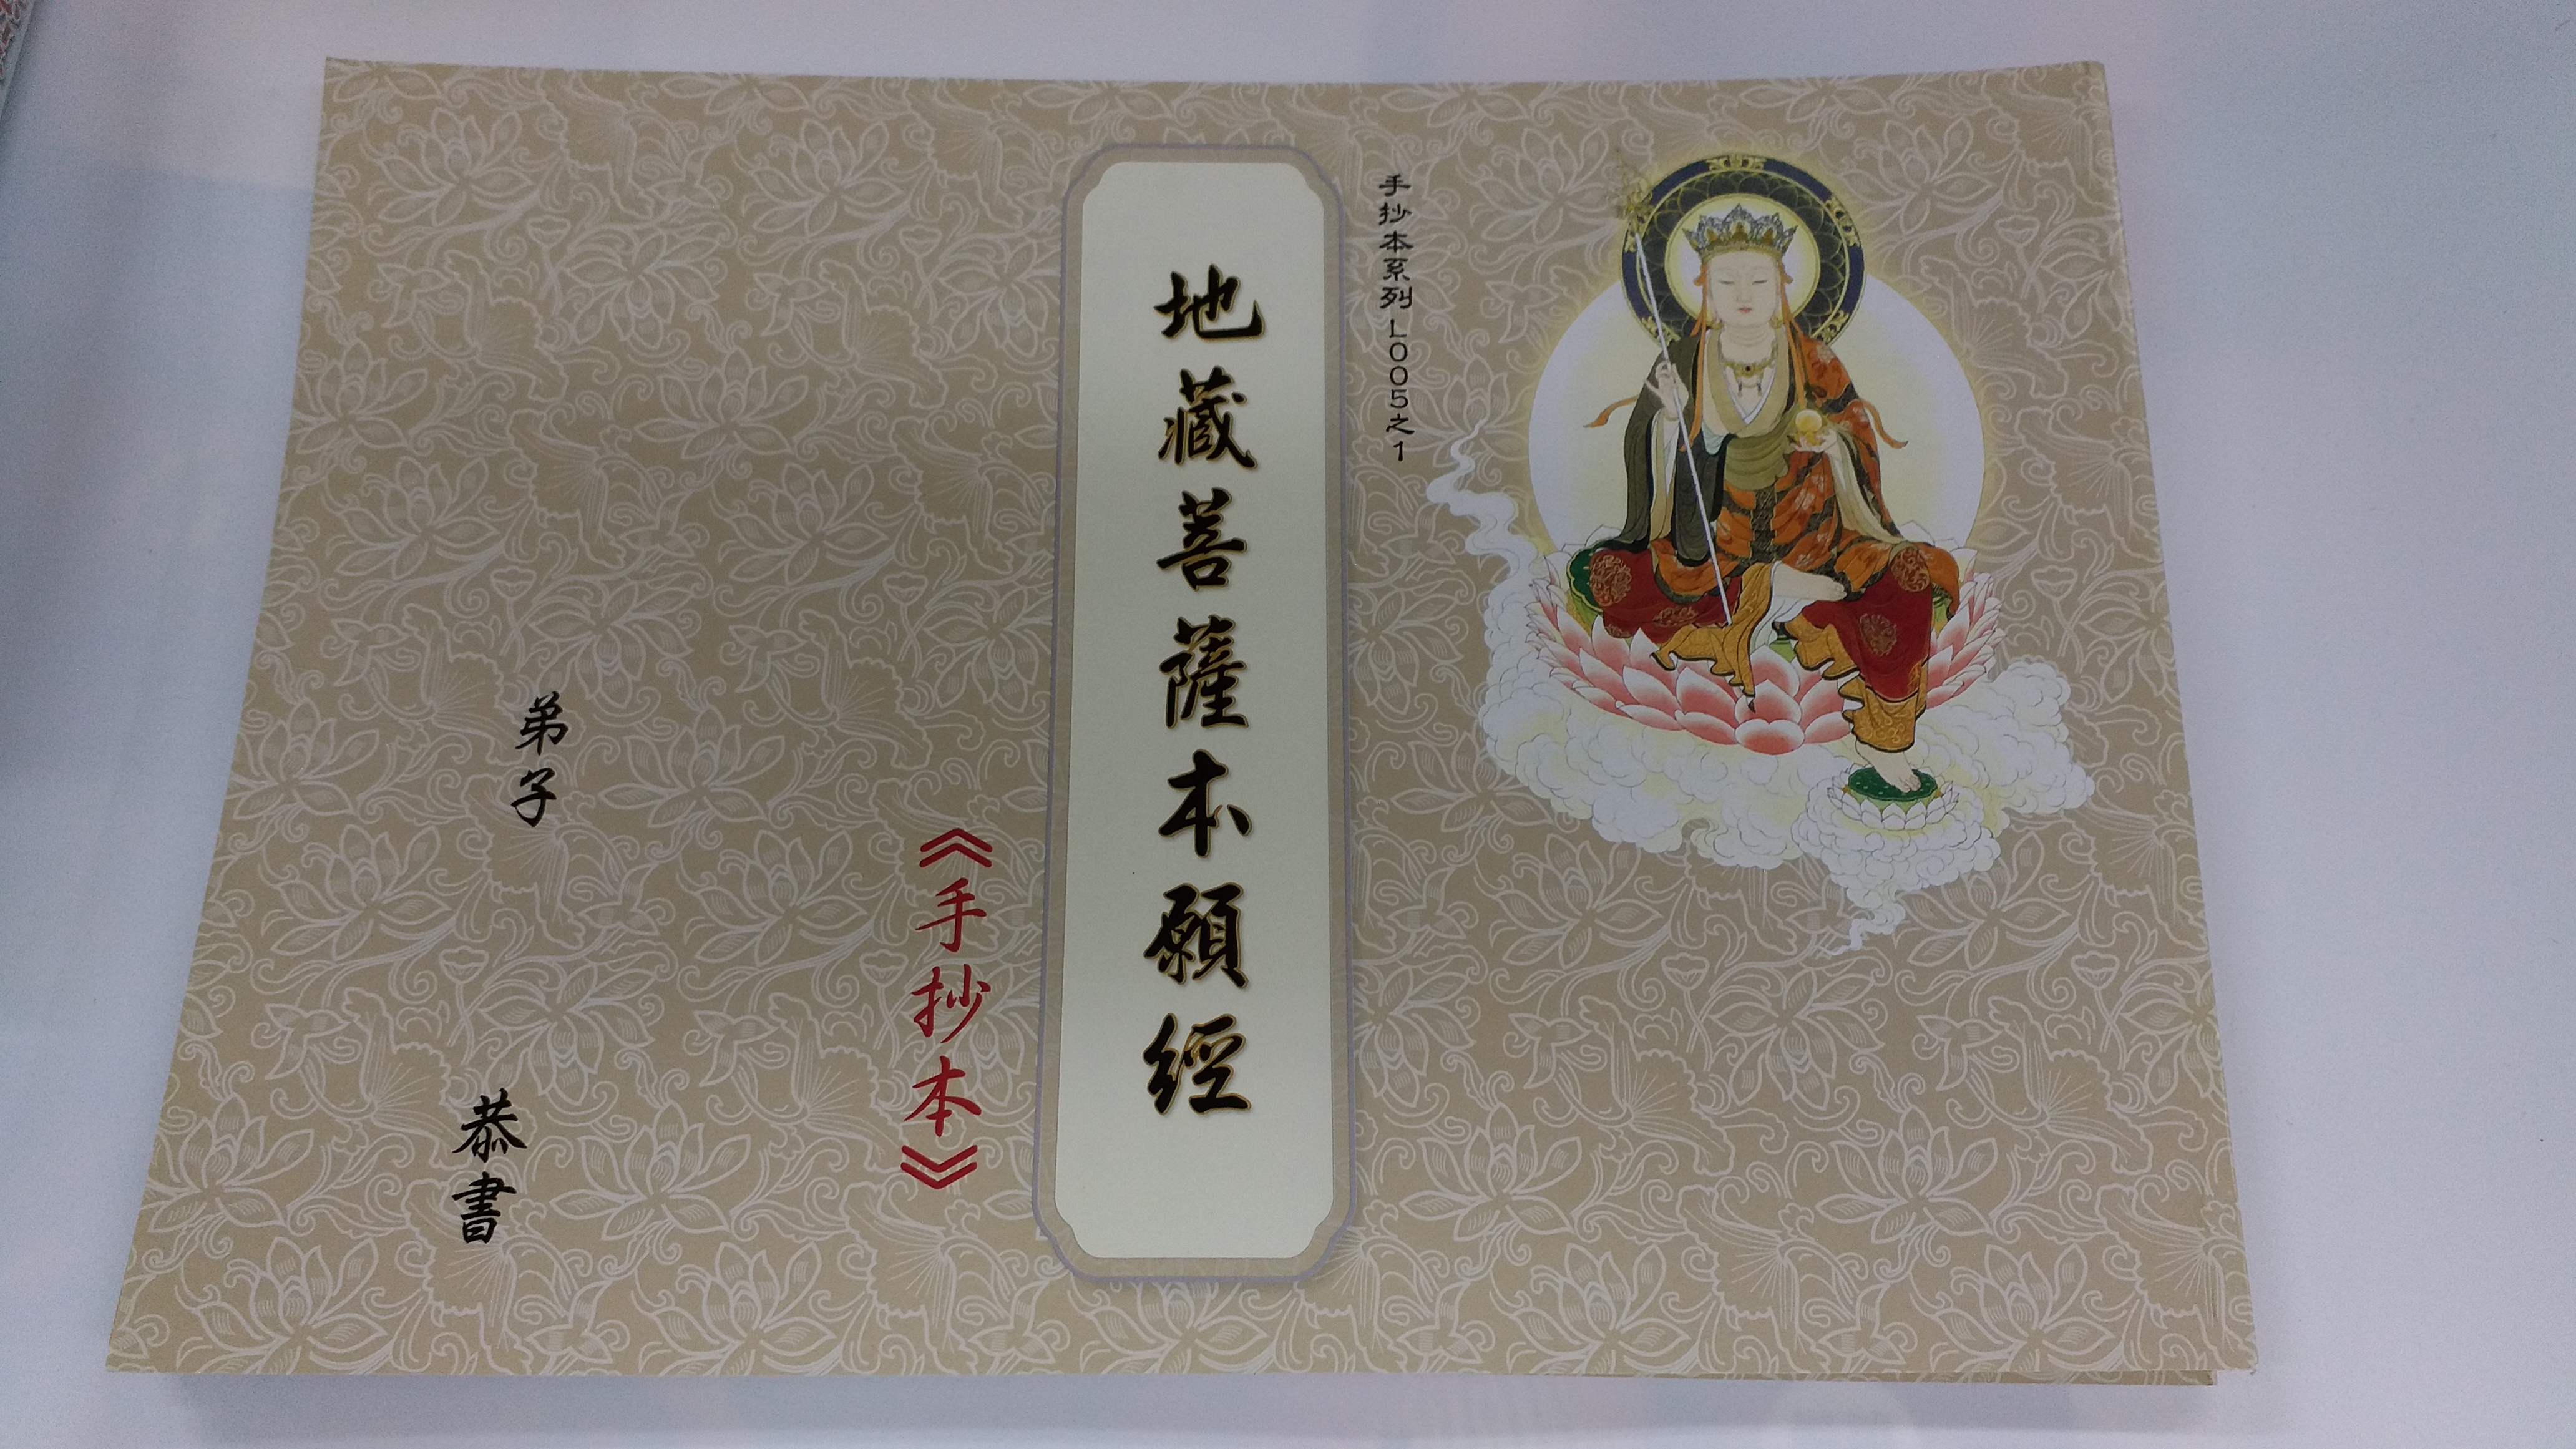 手抄本系列L005之1
地藏菩薩本願經
《手抄本》
弟子 恭書